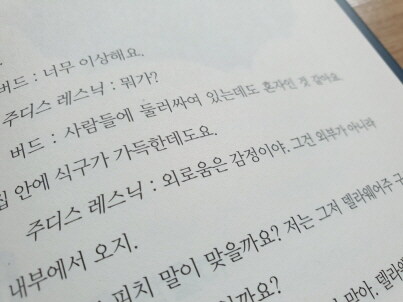 버드 : 너무 이상해요.
주디스 레스닉 : 뭐가?
버드 : 사람들에 둘러싸여 있는데도 혼자인 것 같아요.
집 안에 식구가 가득한데도요.
주디스 레스닉 : 외로움은 감정이야. 그건 외부가 아니라
내부에서 오지.
피치 말이 맞을까요? 저는 그저 델라웨어주
맞아. 델라웨